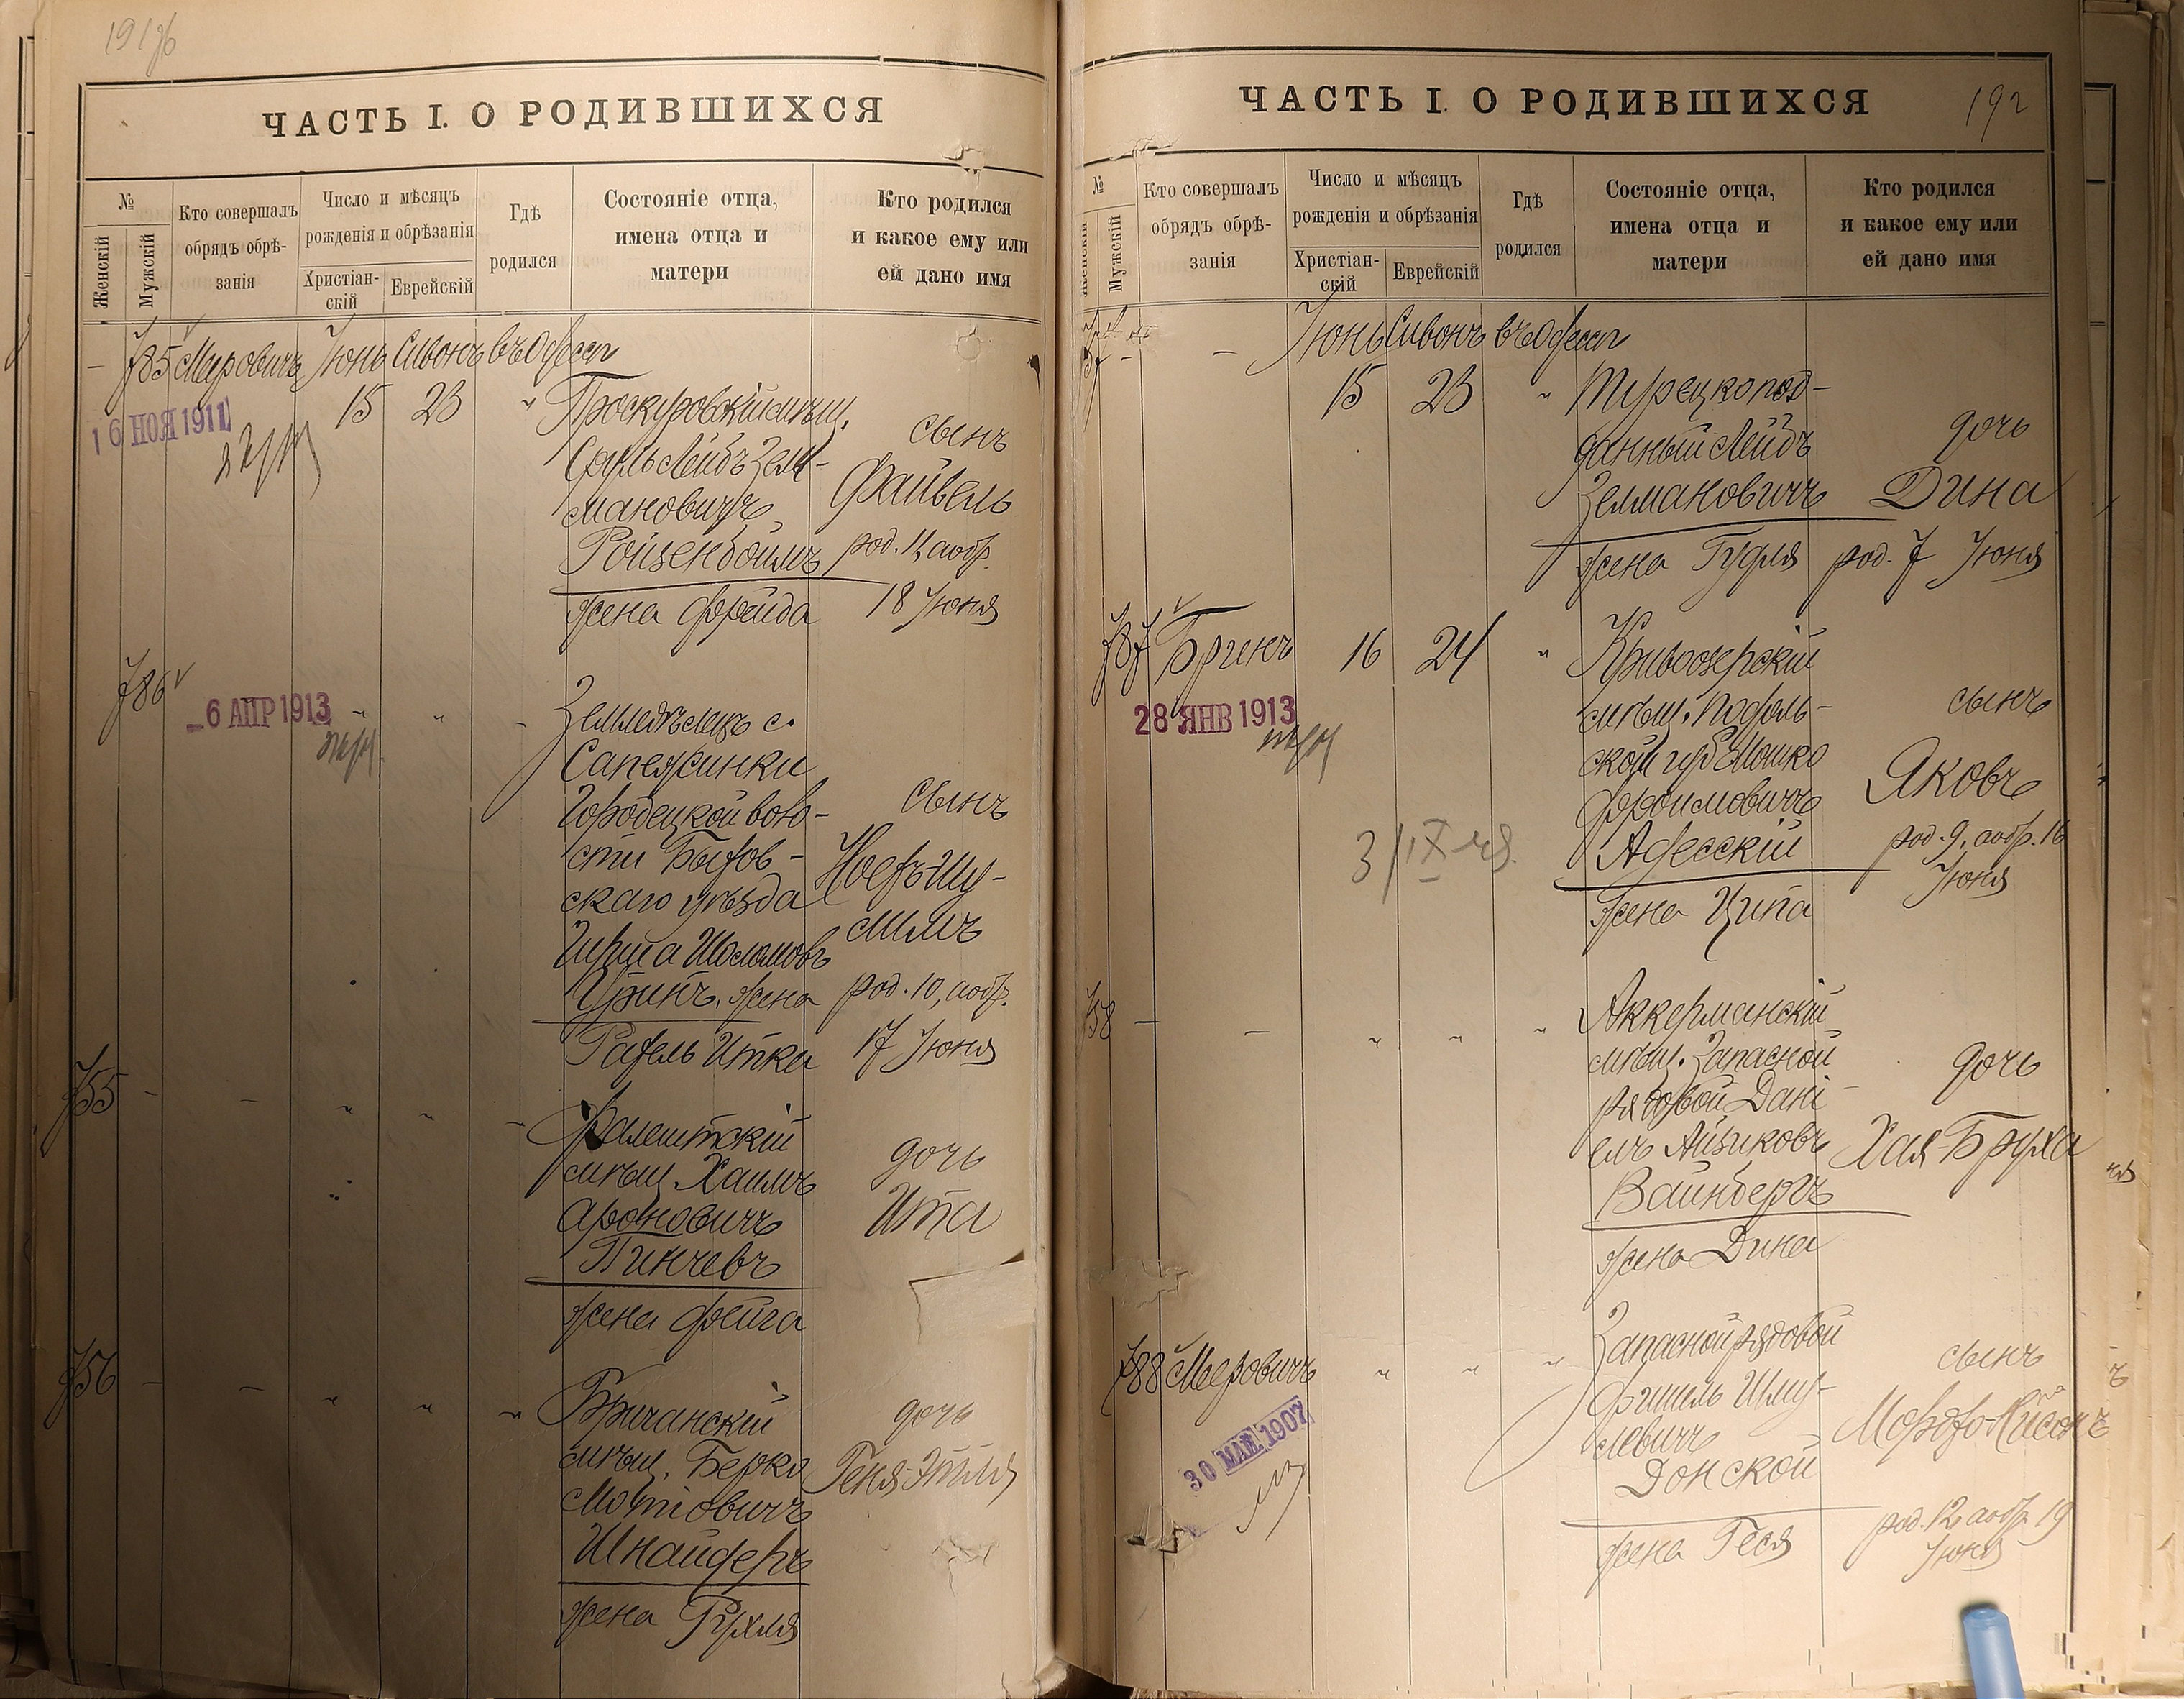 ЧАСТЬ I. О РОДИВШИХСЯ
№
Женскій
Мужскій
Кто совершалъ
обрядъ обрѣ-
занія
Число и мѣсяцъ
рожденія и обрѣзанія
Христіан-
скій
Еврейскій
Гдѣ
родился
Состояніе отца,
имена отца и
матери
Кто родился
и какое ему или
ей дано имя
785 Меровичъ Іюнь Сивонъ въ Одессѣ
15 23 " Проскуровскій мѣщ.
16 НОЯ 1911
Сруль Лейбъ Зель-
мановичъ
Ройзенбоймъ
жена Фрейда
сынъ
Файвель
род. 11, а обр.
18 Іюня
786
-6 АПР 1913
" " "
Земледѣлецъ с.
Сапежинки
Городецкой воло-
сти Быхов-
скаго уѣзда
Гирша Шоломовъ
жена
Рахель Итка
сынъ
род. 10, а обр.
17 Іюня
755 - - " " "
Фалештскій
мѣщ. Хаимъ
Ароновичъ
Пинчевъ
жена Фейга
дочь
Ита
756 - - " " "
Бричанскій
мѣщ. Берко
Мотіовичъ
Шнайдеръ
жена Рухля
дочь
Геня-Этля
ЧАСТЬ I. О РОДИВШИХСЯ
192
№
Женскій
Мужскій
Кто совершалъ
обрядъ обрѣ-
занія
Число и мѣсяцъ
рожденія и обрѣзанія
Христіан-
скій
Еврейскій
Гдѣ
родился
Состояніе отца,
имена отца и
матери
Кто родился
и какое ему или
ей дано имя
- - Іюнь Сивонъ въ Одессѣ
15 23 " Турецкопод-
данный Лейбъ
Зелмановичъ
жена Гудля
дочь
Дина
род. 7 Іюня
787 Бринъ 16 24 " Кривоозерскій
28 ЯНВ 1913
мѣщ. Подоль-
ской губ. Мошко
Фроимовичъ
Адесскій
жена Ципа
сынъ
Яковъ
род. 9, а обр. 16
Іюня
3/IX 48.
758 - - " " "
Аккерманскій
мѣщ. Запасной
рядовой Дані-
елъ Айзиковъ
Вайнбергъ
жена Дина
дочь
Хая-Бруха
788 Меровичъ " " "
30 МАЙ 1907
Запасной рядовой
Фишель Шму-
левичъ
Донской
жена Геся
сынъ
род. 12, а обр. 19
Іюня